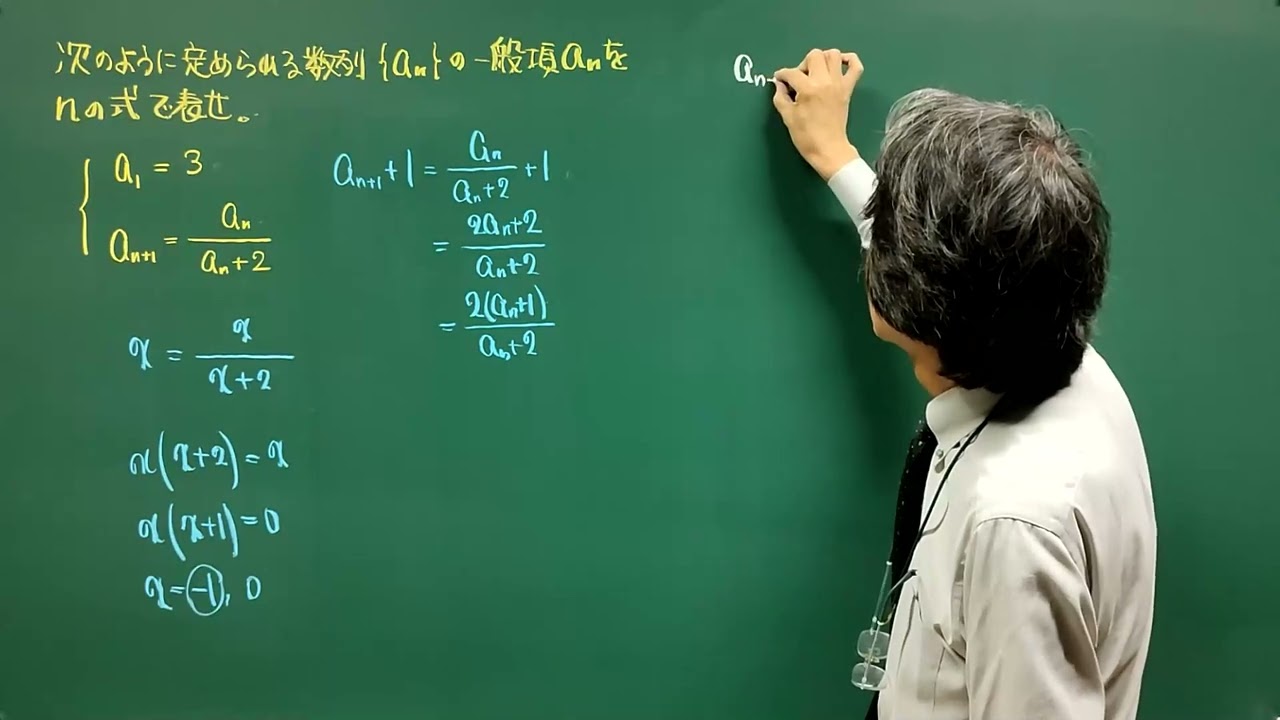 次のように定められる数列{aₙ}の一般項aₙを
nの式で表せ。
a₁ = 3
aₙ₊₁ = aₙ/(aₙ+2)
x = x/(x+2)
x(x+2)=x
x(x+1)=0
x=-1, 0
aₙ₊₁+1 = aₙ/(aₙ+2) +1
= (2aₙ+2)/(aₙ+2)
= 2(aₙ+1)/(aₙ+2)
aₙ